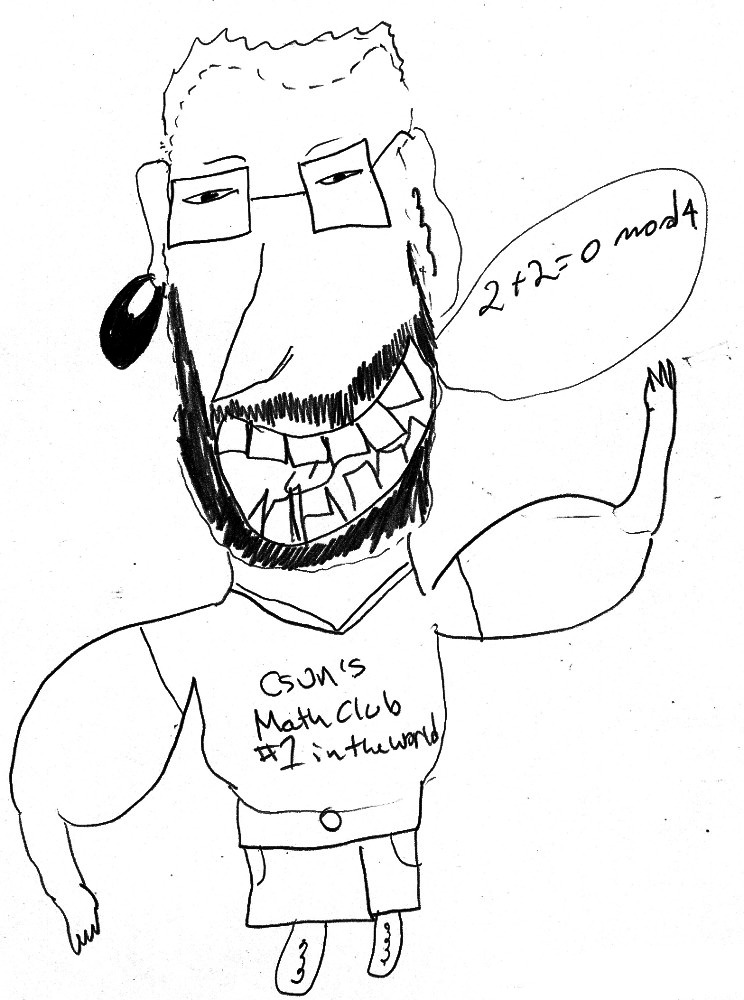 2+2=0 mod4
CSUN's
Math Club
#1 in the world